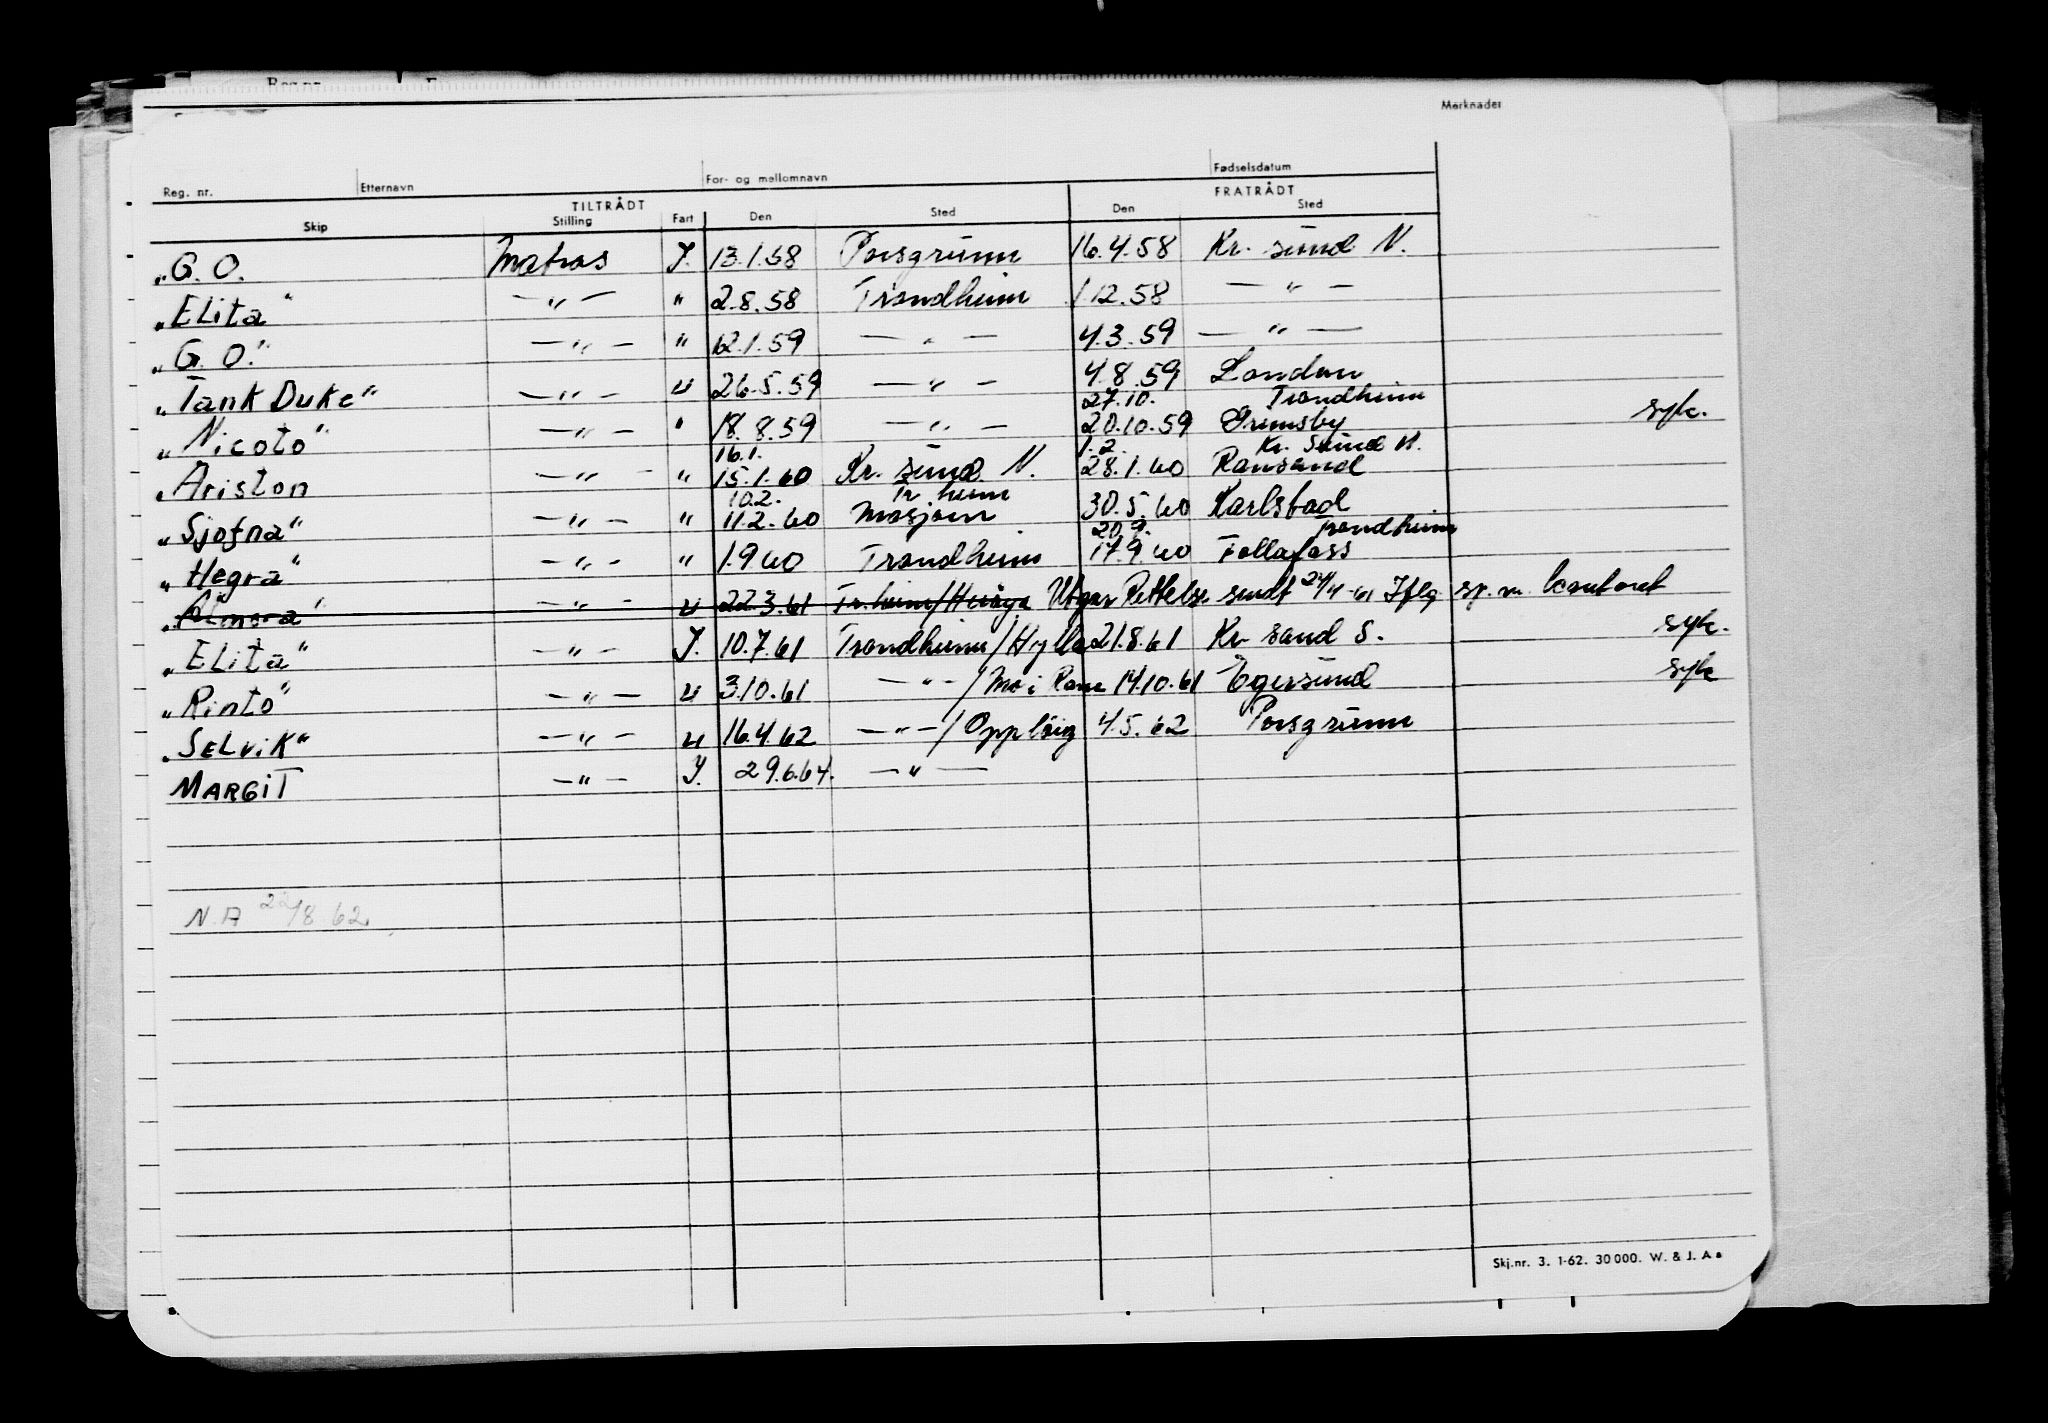 Merknader
Reg. nr. Etternavn For- og mellomnavn Fødselsdatum
TILTRÅDT FRATRÅDT
Skip Stilling Fart Den Sted Den Sted
"G. O. Matros J. 13.1.58 Porsgrunn 16.4.58 Kr. sund N.
"Elita" —"— " 2.8.58 Trondheim 1.12.58 —"—
"G. O." —"— " 12.1.59 —"— 4.3.59 —"—
"Tank Duke" —"— " 26.5.59 —"— 4.8.59 London
27.10. Trondheim
"Nicoto" —"— " 18.8.59 —"— 20.10.59 Grimsby syk.
16.1. 1.2. Kr. Sund N.
"Ariston —"— " 15.1.60 Kr. sund N. 28.1.60
10.2. Tr. heim
"Sjofna" —"— " 11.2.60 Mosjøen 30.5.60 Karlstad
20.9. Trondheim
"Hegra" —"— " 1.9.60 Trondheim 17.9.60 Follafoss
—"— " 22.3.61 Tr.heim/ Utgår Rettelse sendt 24/4-61 Iflg sp. m. kontoret
"Elita" —"— J. 10.7.61 Trondheim/Hylla 21.8.61 Kr sand S. syk.
"Rinto" —"— " 3.10.61 —"—/Mo i Rana 14.10.61 Egersund syk
"Selvik" —"— " 16.4.62 —"—/ 4.5.62 Porsgrunn
MARGIT —"— J. 29.6.64. —"—
N.A 22/8 62.
Skj.nr. 3. 1-62. 30 000. W. & J. A s